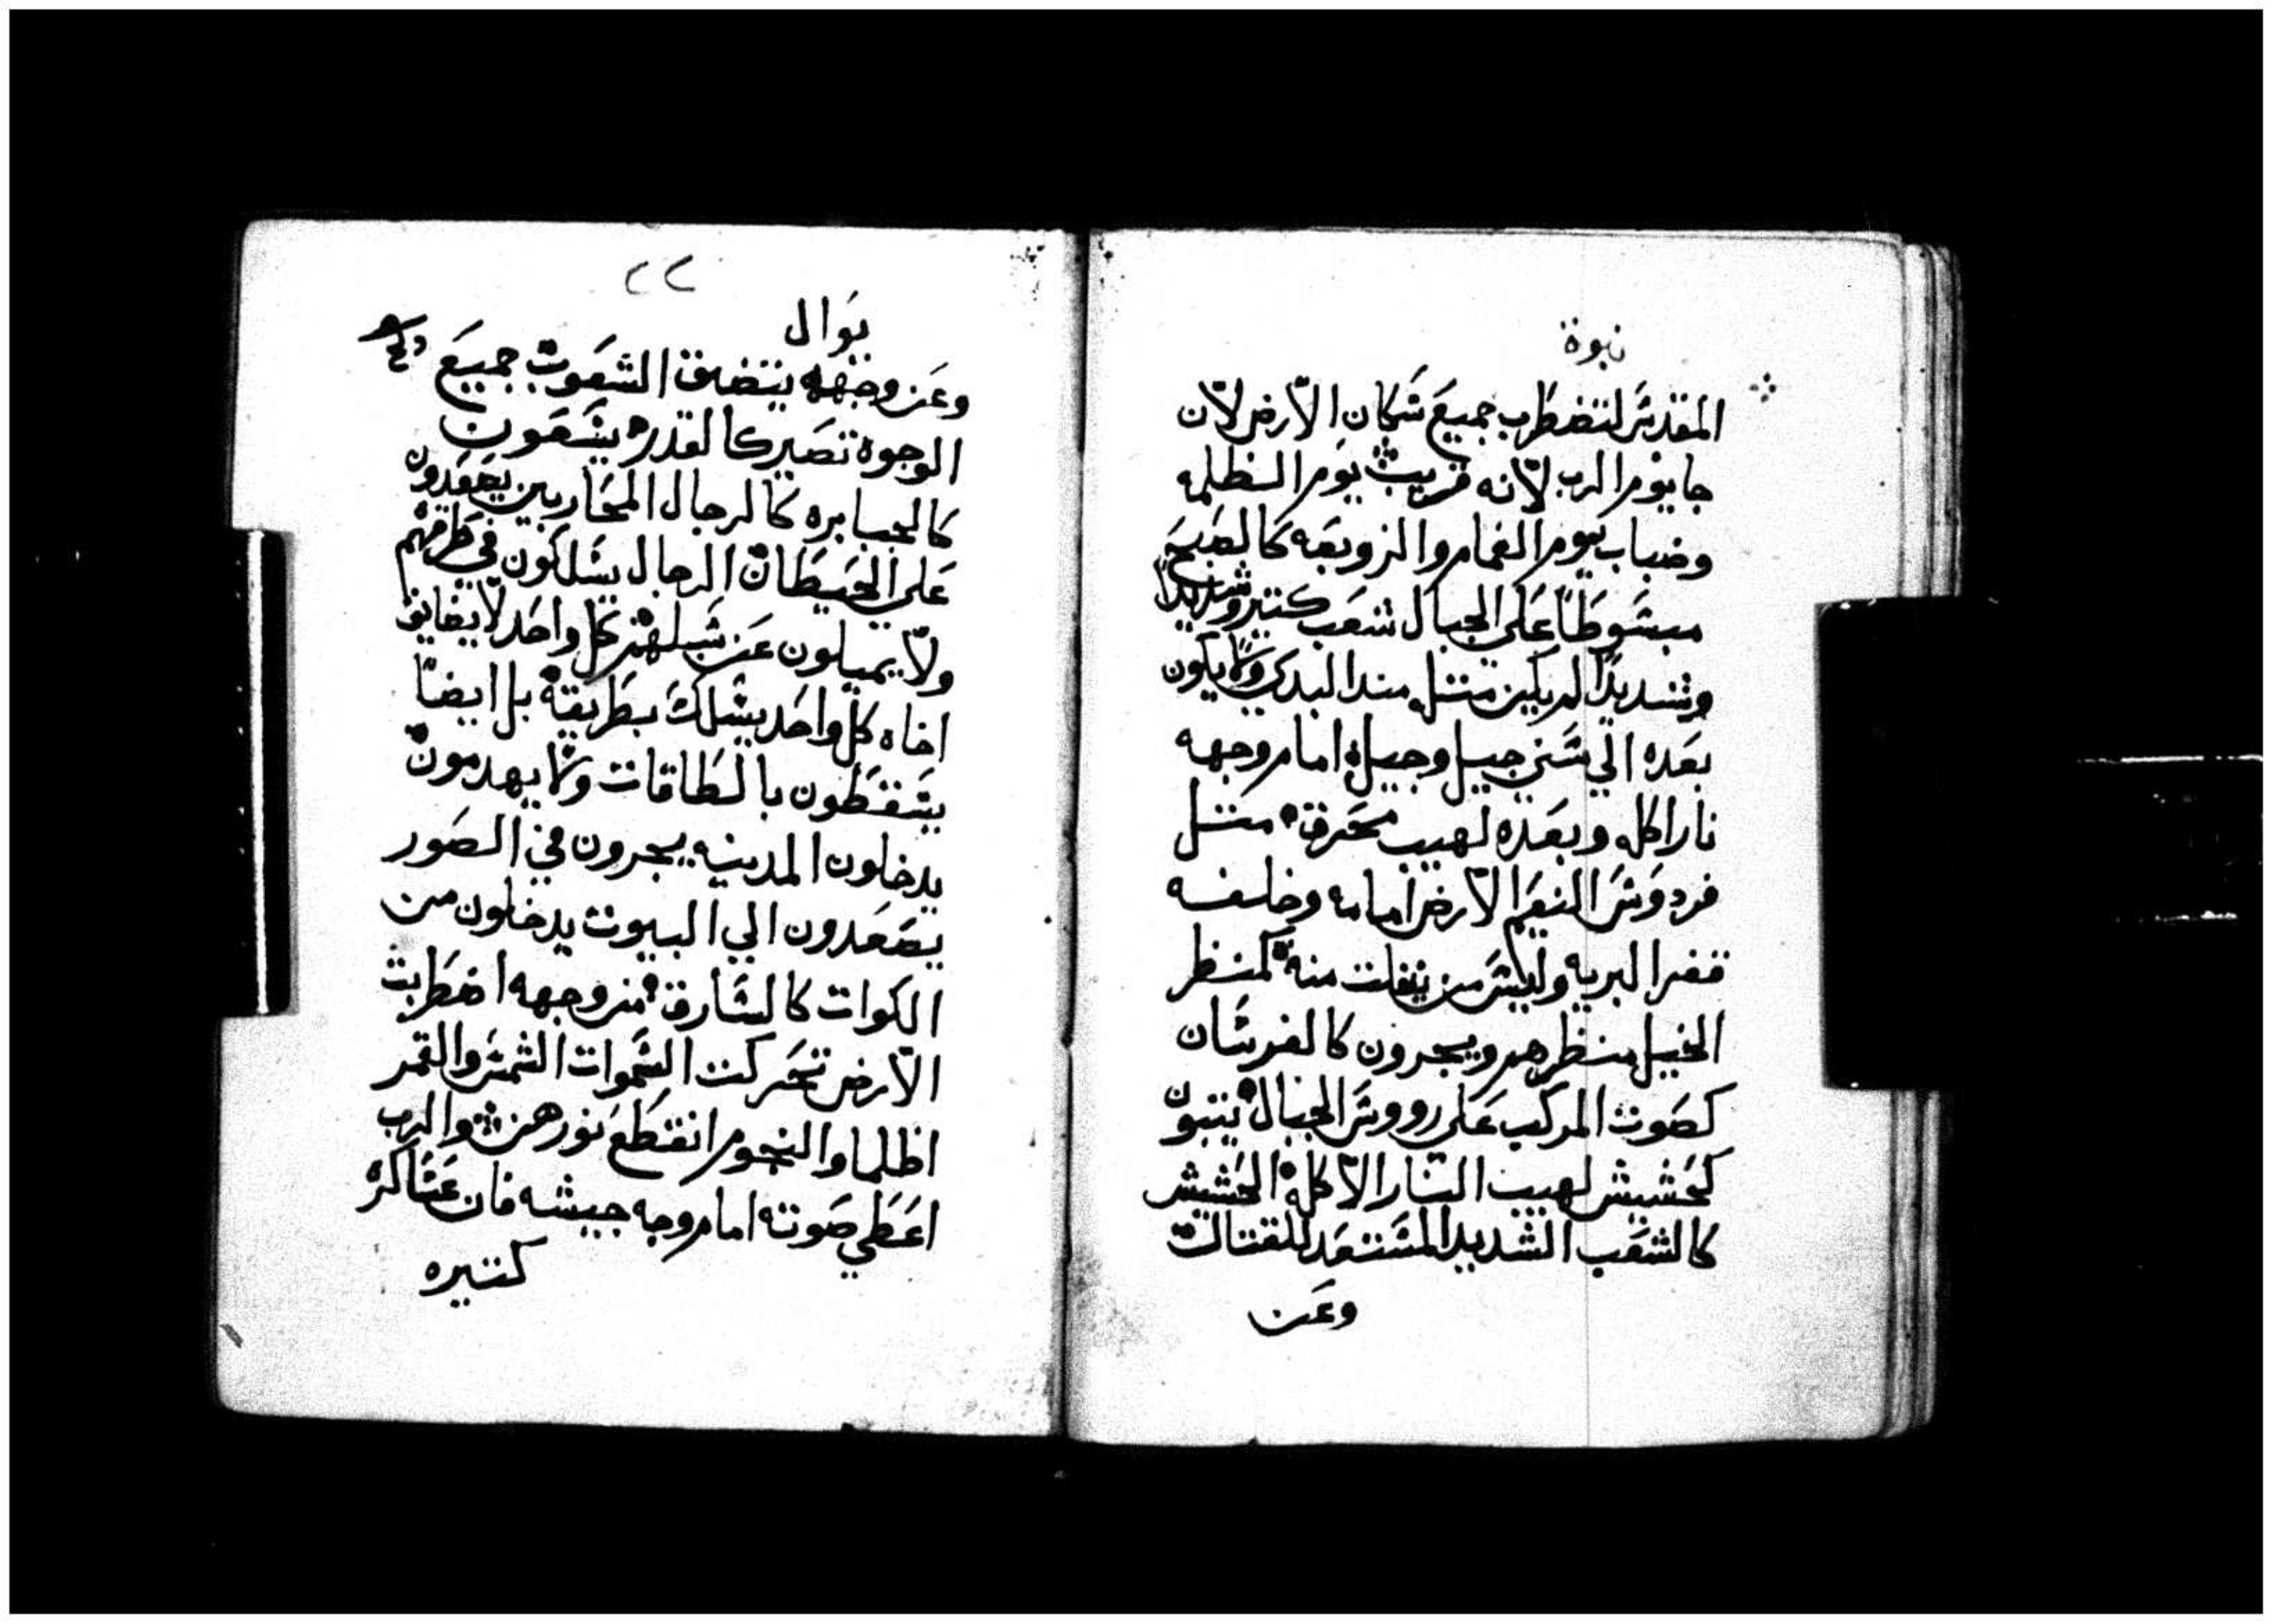 نبوة
المقدس لتضطرب جميع سكان الأرض لأن
جا يوم الرب لأنه قريب يوم الظلمه
وضباب يوم الغمام والزوبعه كالصبح
مبسوطاً علي الجبال شعب كتير وشديداً
وشديداً لم يكن متله مند البدي ولا يكون
بعده الي سني جيل وجيل امام وجهه
نارا كله وبعده لهيب محرق متل
فردوس النعيم الأرض امامه وخلفه
قفر البريه وليس من ينفلت منه كمنظر
الخيل منظرهم ويجرون كالفرسان
كصوت المركب علي رووس الجبال يتبون
كحشيش لهيب النار الأكله الحشيش
كالشعب الشديد المستعد للقتال
وعن
٢٢
يوال
وعن وجهه يتضيق الشعوب جميع
الوجوة تصير كالقدره يسعون
كالجبابره كالرجال المحاربين يصعدون
علي الحيطان الرجال يسلكون في طرقهم
ولا يميلون عن سبلهم كل واحد لا يضايق
اخاه كل واحد يسلك بطريقة بل ايضاً
يسقطون بالطاقات ولا يهدمون
يدخلون المدينه يجرون في الصور
يصعدون الي البيوت يدخلون من
الكوات كالسارق من وجهه اضطربت
الأرض تحركت السموات الشمس والقمر
اظلما والنجوم انقطع نورهن والرب
اعطي صوته امام وجه جيشه فان عساكره
كتيره